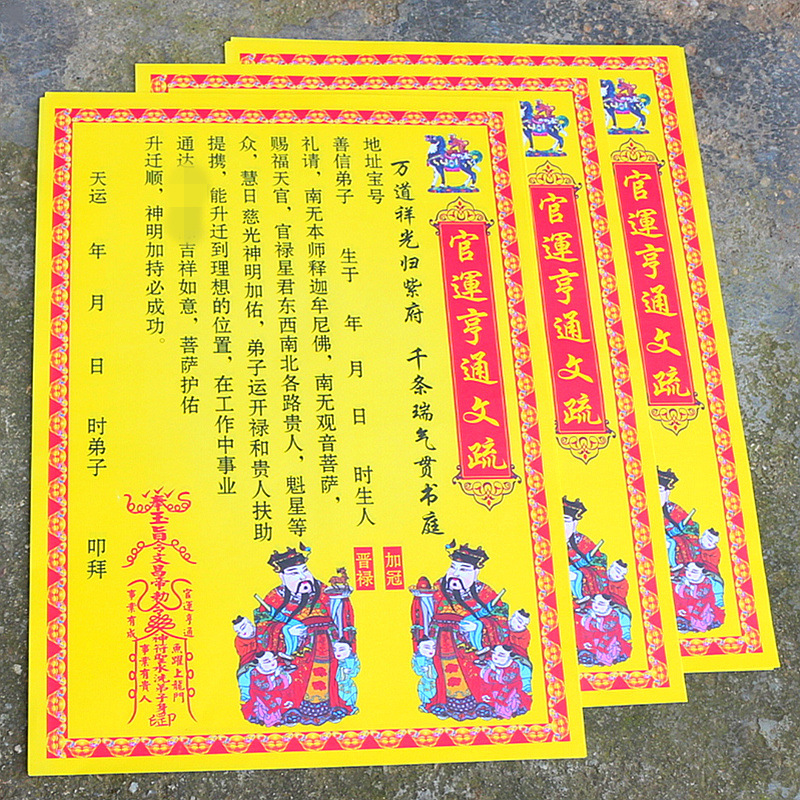 官運亨通文疏
万道祥光归紫府 千条瑞气贯书庭
地址宝号
善信弟子 生于 年 月 日 时生人
礼请，南无本师释迦牟尼佛，南无观音菩萨，
赐福天官，官禄星君东西南北各路贵人，魁星等
众，慧日慈光神明加佑，弟子运开禄和贵人扶助
提携，能升迁到理想的位置，在工作中事业
通达 吉祥如意，菩萨护佑
升迁顺，神明加持必成功。
天运 年 月 日 时弟子 叩拜
加冠
晋禄
奉玉旨令文昌帝勅令
神符圣水洗弟子身
官運亨通
魚躍上龍門
事業有成
事業有貴人
印
官運亨通文疏
官運亨通文疏